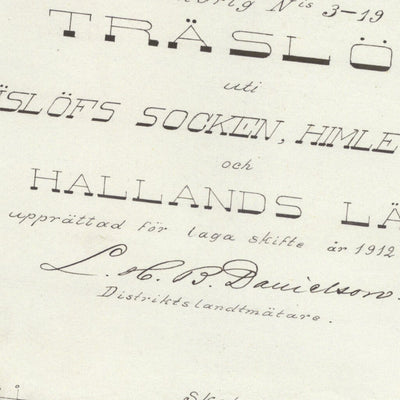 N:is 3-19
TRÄSLÖ
uti
ÄSLÖFS SOCKEN, HIMLE
och
HALLANDS LÄ
upprättad för laga skifte år 1912
L. H. B. Danielson.
Distriktslandtmätare.